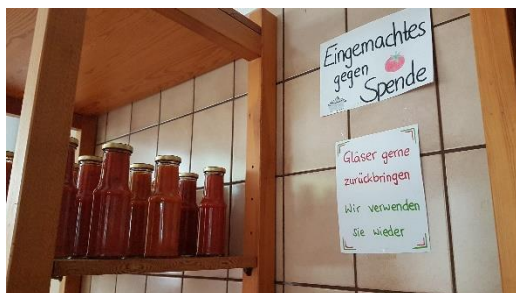 Eingemachtes
gegen
Spende
Gläser gerne
zurückbringen
Wir verwenden
sie wieder